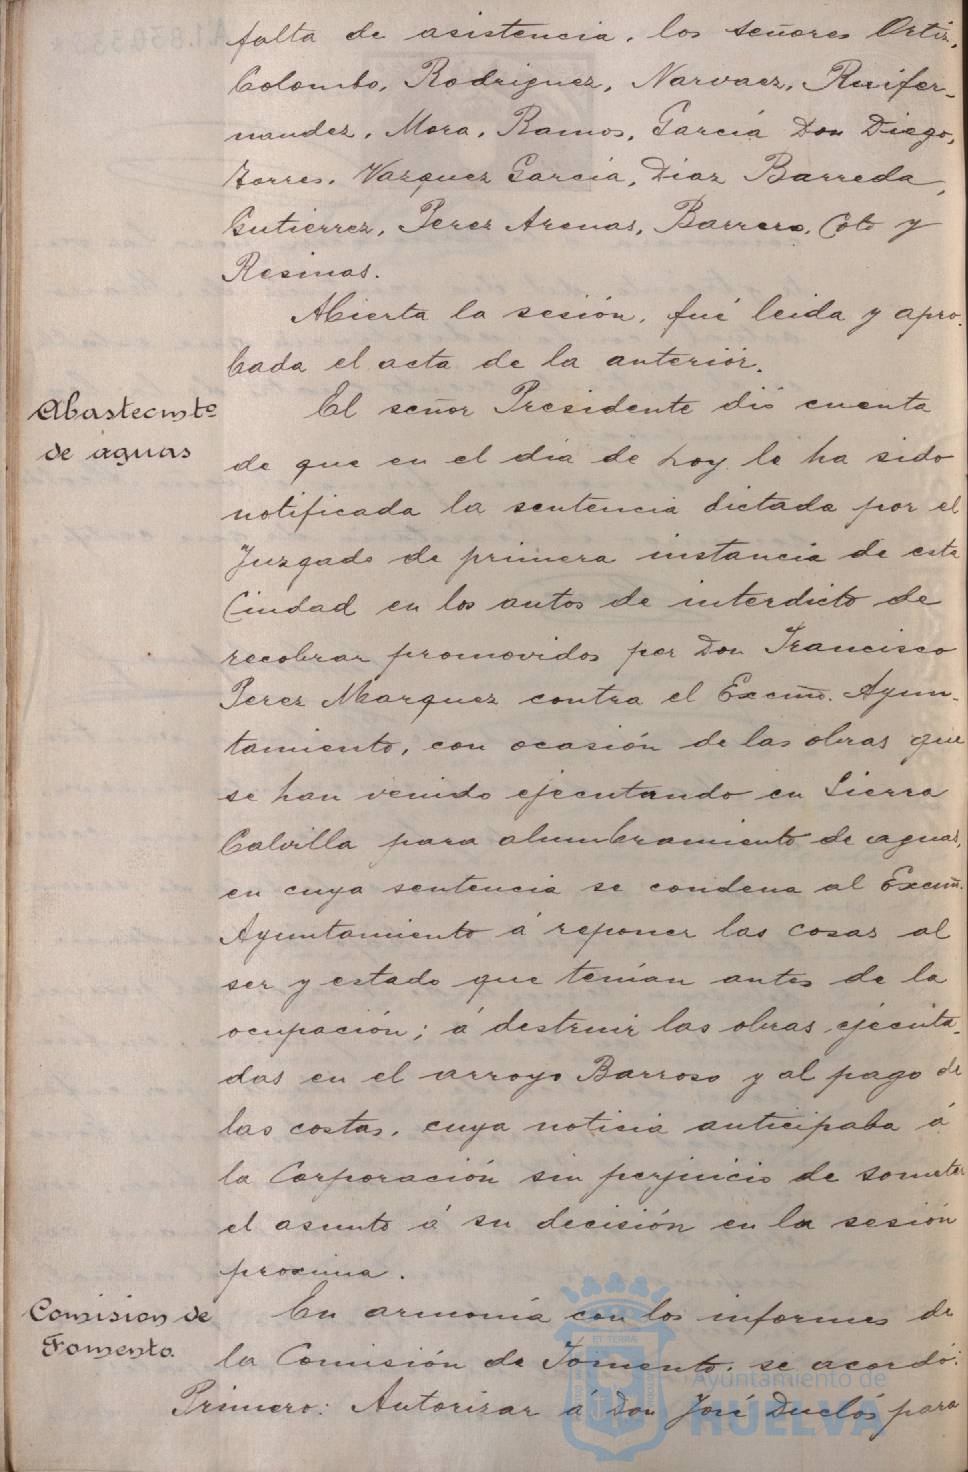 falta de asistencia, los señores Ortiz,
Colombo, Rodriguez, Narvaez, Ruifer-
nandez, Mora, Ramos, García Don Diego,
Torres, Vazquez García, Diaz Barreda,
Gutierrez, Perez Arenas, Barrero, Coto y
Resinas.
Abierta la sesión, fué leida y apro-
bada el acta de la anteriór.
Abastecmto
de aguas
El señor Presidente dió cuenta
de que en el dia de hoy le ha sido
notificada la sentencia dictada por el
Juzgado de primera instancia de esta
Ciudad en los autos de interdicto de
recobrar promovidos por Don Francisco
Perez Marquez contra el Excmo. Ayun-
tamiento, con ocasión de las obras que
se han venido ejecutando en Sierra
Calvilla para alumbramiento de aguas,
en cuya sentencia se condena al Excmo.
Ayuntamiento á reponer las cosas al
ser y estado que tenían antes de la
ocupación; á destruir las obras ejecuta-
das en el arroyo Barroso y al pago de
las costas, cuya noticia anticipaba á
la Corporación sin perjuicio de someter
el asunto á su decisión en la sesión
proxima.
Comision de
Fomento.
En armonía con los informes de
la Comisión de Fomento, se acordó:
Primero: Autorizar á Don José Duclós para
Ayuntamiento de
HUELVA